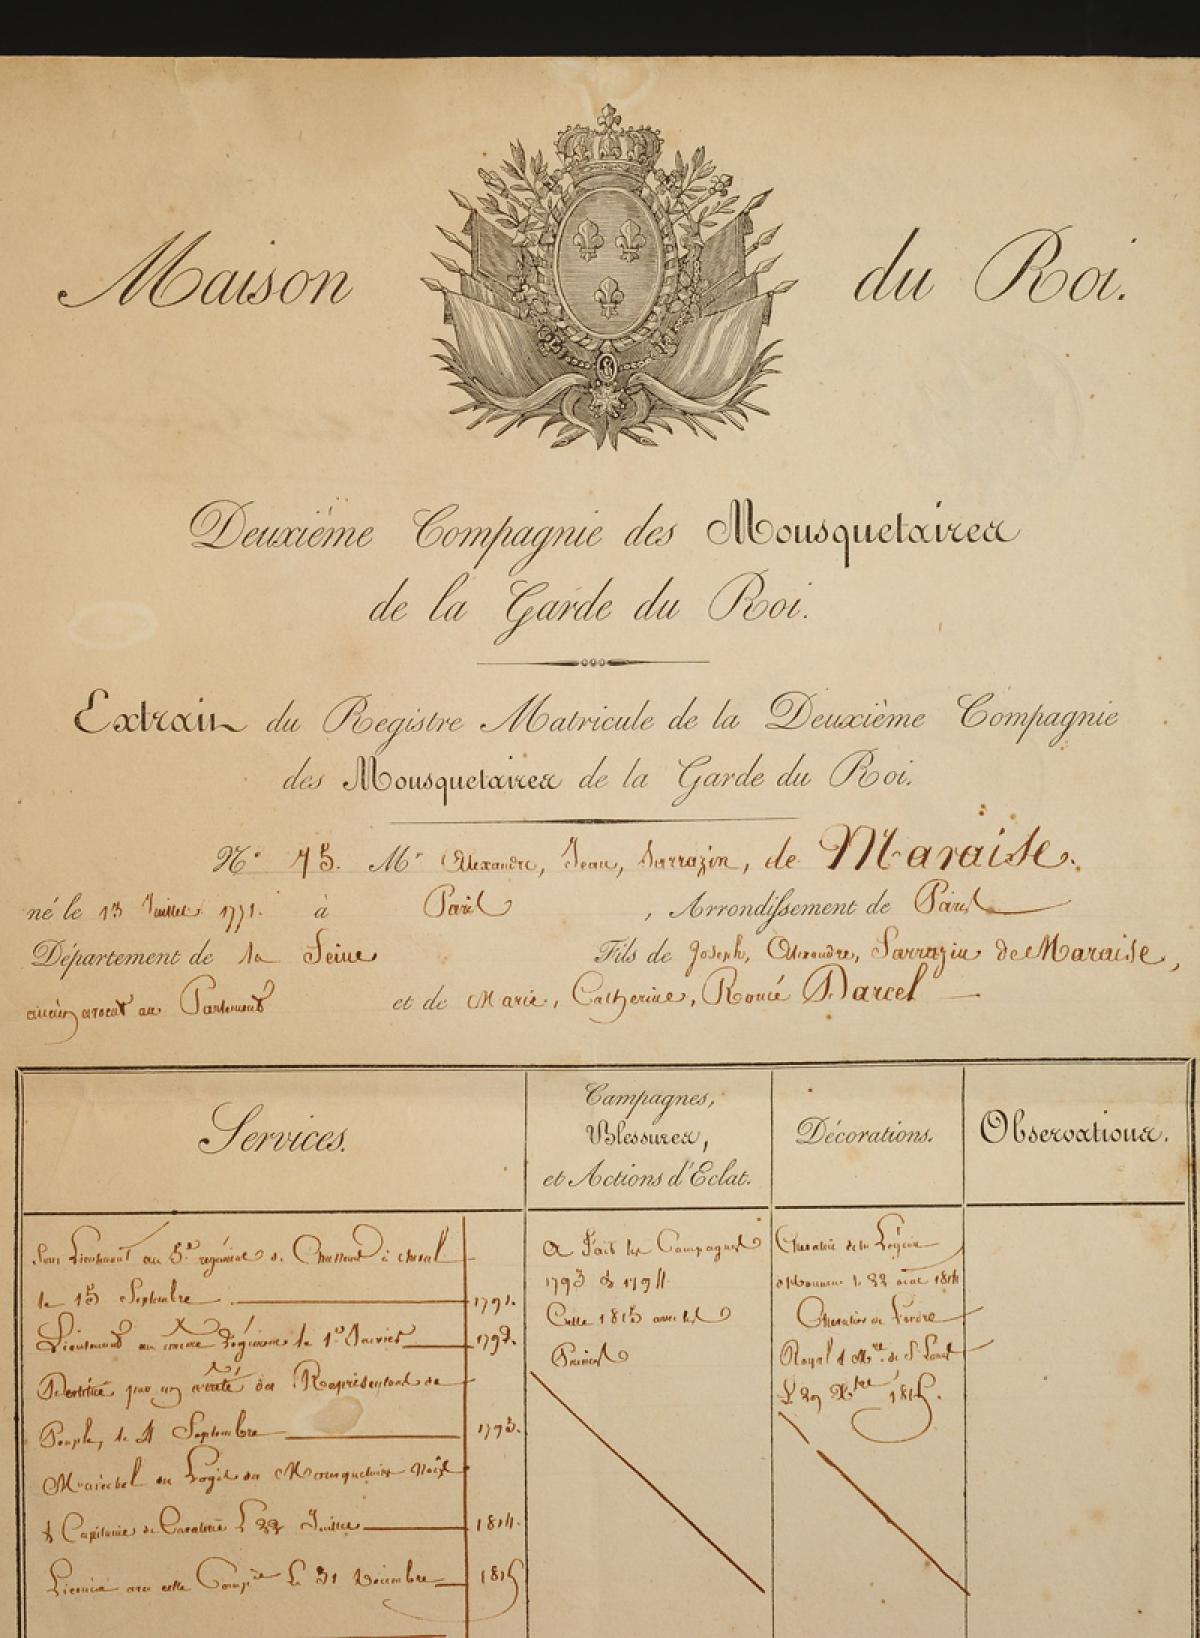 Maison du Roi.
Deuxième Compagnie des Mousquetaires
de la Garde du Roi.
Extrait du Registre Matricule de la Deuxième Compagnie
des Mousquetaires de la Garde du Roi.
N.º 75. Mr Alexandre, Jean, Sarrazin, de Maraise.
né le 13 Juillet 1771. à Paris, Arrondissement de Paris
Département de la Seine Fils de Joseph, Alexandre, Sarrazin de Maraise,
ancien avocat au Parlement et de Marie, Catherine, Darcel
Services.
Campagnes,
Blessures,
et Actions d'Eclat.
Décorations.
Observations.
Sous Lieutenant au 5e régiment de Chasseurs à cheval
le 15 Septembre 1791.
Lieutenant au Légion le 1er Janvier
par un arrêté du Représentant du
Peuple, le 4 Septembre 1793.
Maréchal des Logis des Mousquetaires Noirs
& Capitaine de Cavalerie Le 22 Juillet 1814.
Licencié avec cette Compie Le 31 Décembre 1815
A fait les Campagnes
1793 & 1794
Celle 1815 avec les
Princes
Chevalier de la Légion
d'honneur le 22 1814
Chevalier de l'ordre
Royal & Mre de St Louis
Le 29 Xbre 1815.